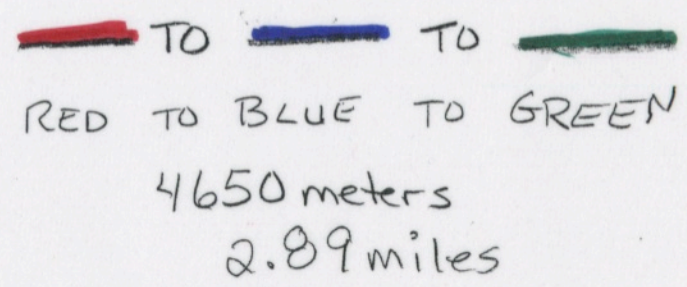 TO TO
RED TO BLUE TO GREEN
4650 meters
2.89 miles